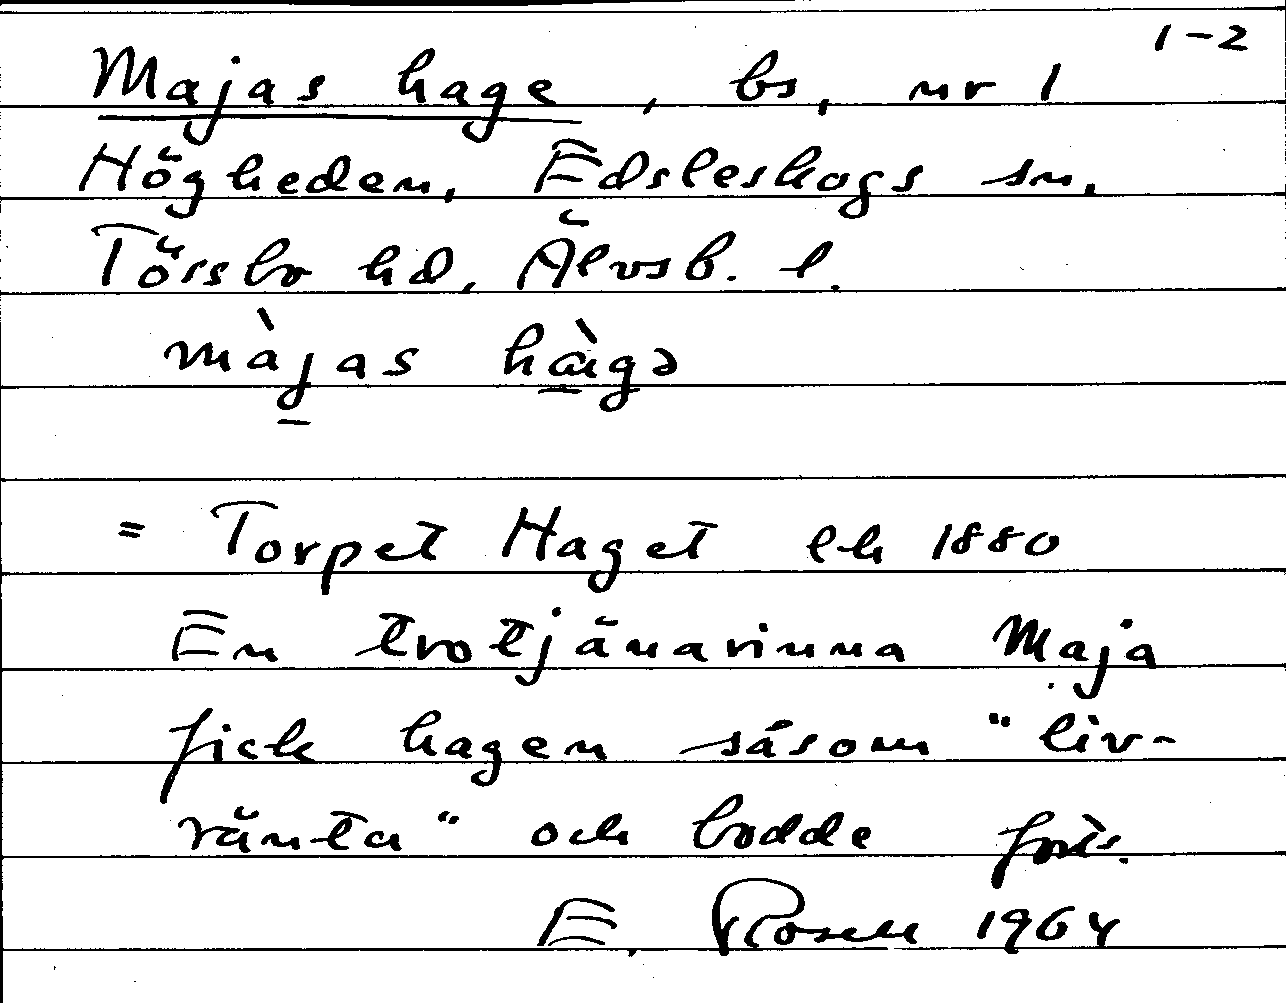 1-2
Majas hage, bs, nr 1
Högheden, Edsleskogs sn.
Tössbo hd, Älvsb. l.
màjas hàgə
= Torpet Haget ek 1880
En trotjänarinna Maja
fick hagen såsom "liv-
ränta" och bodde forts.
E. Rosell 1964